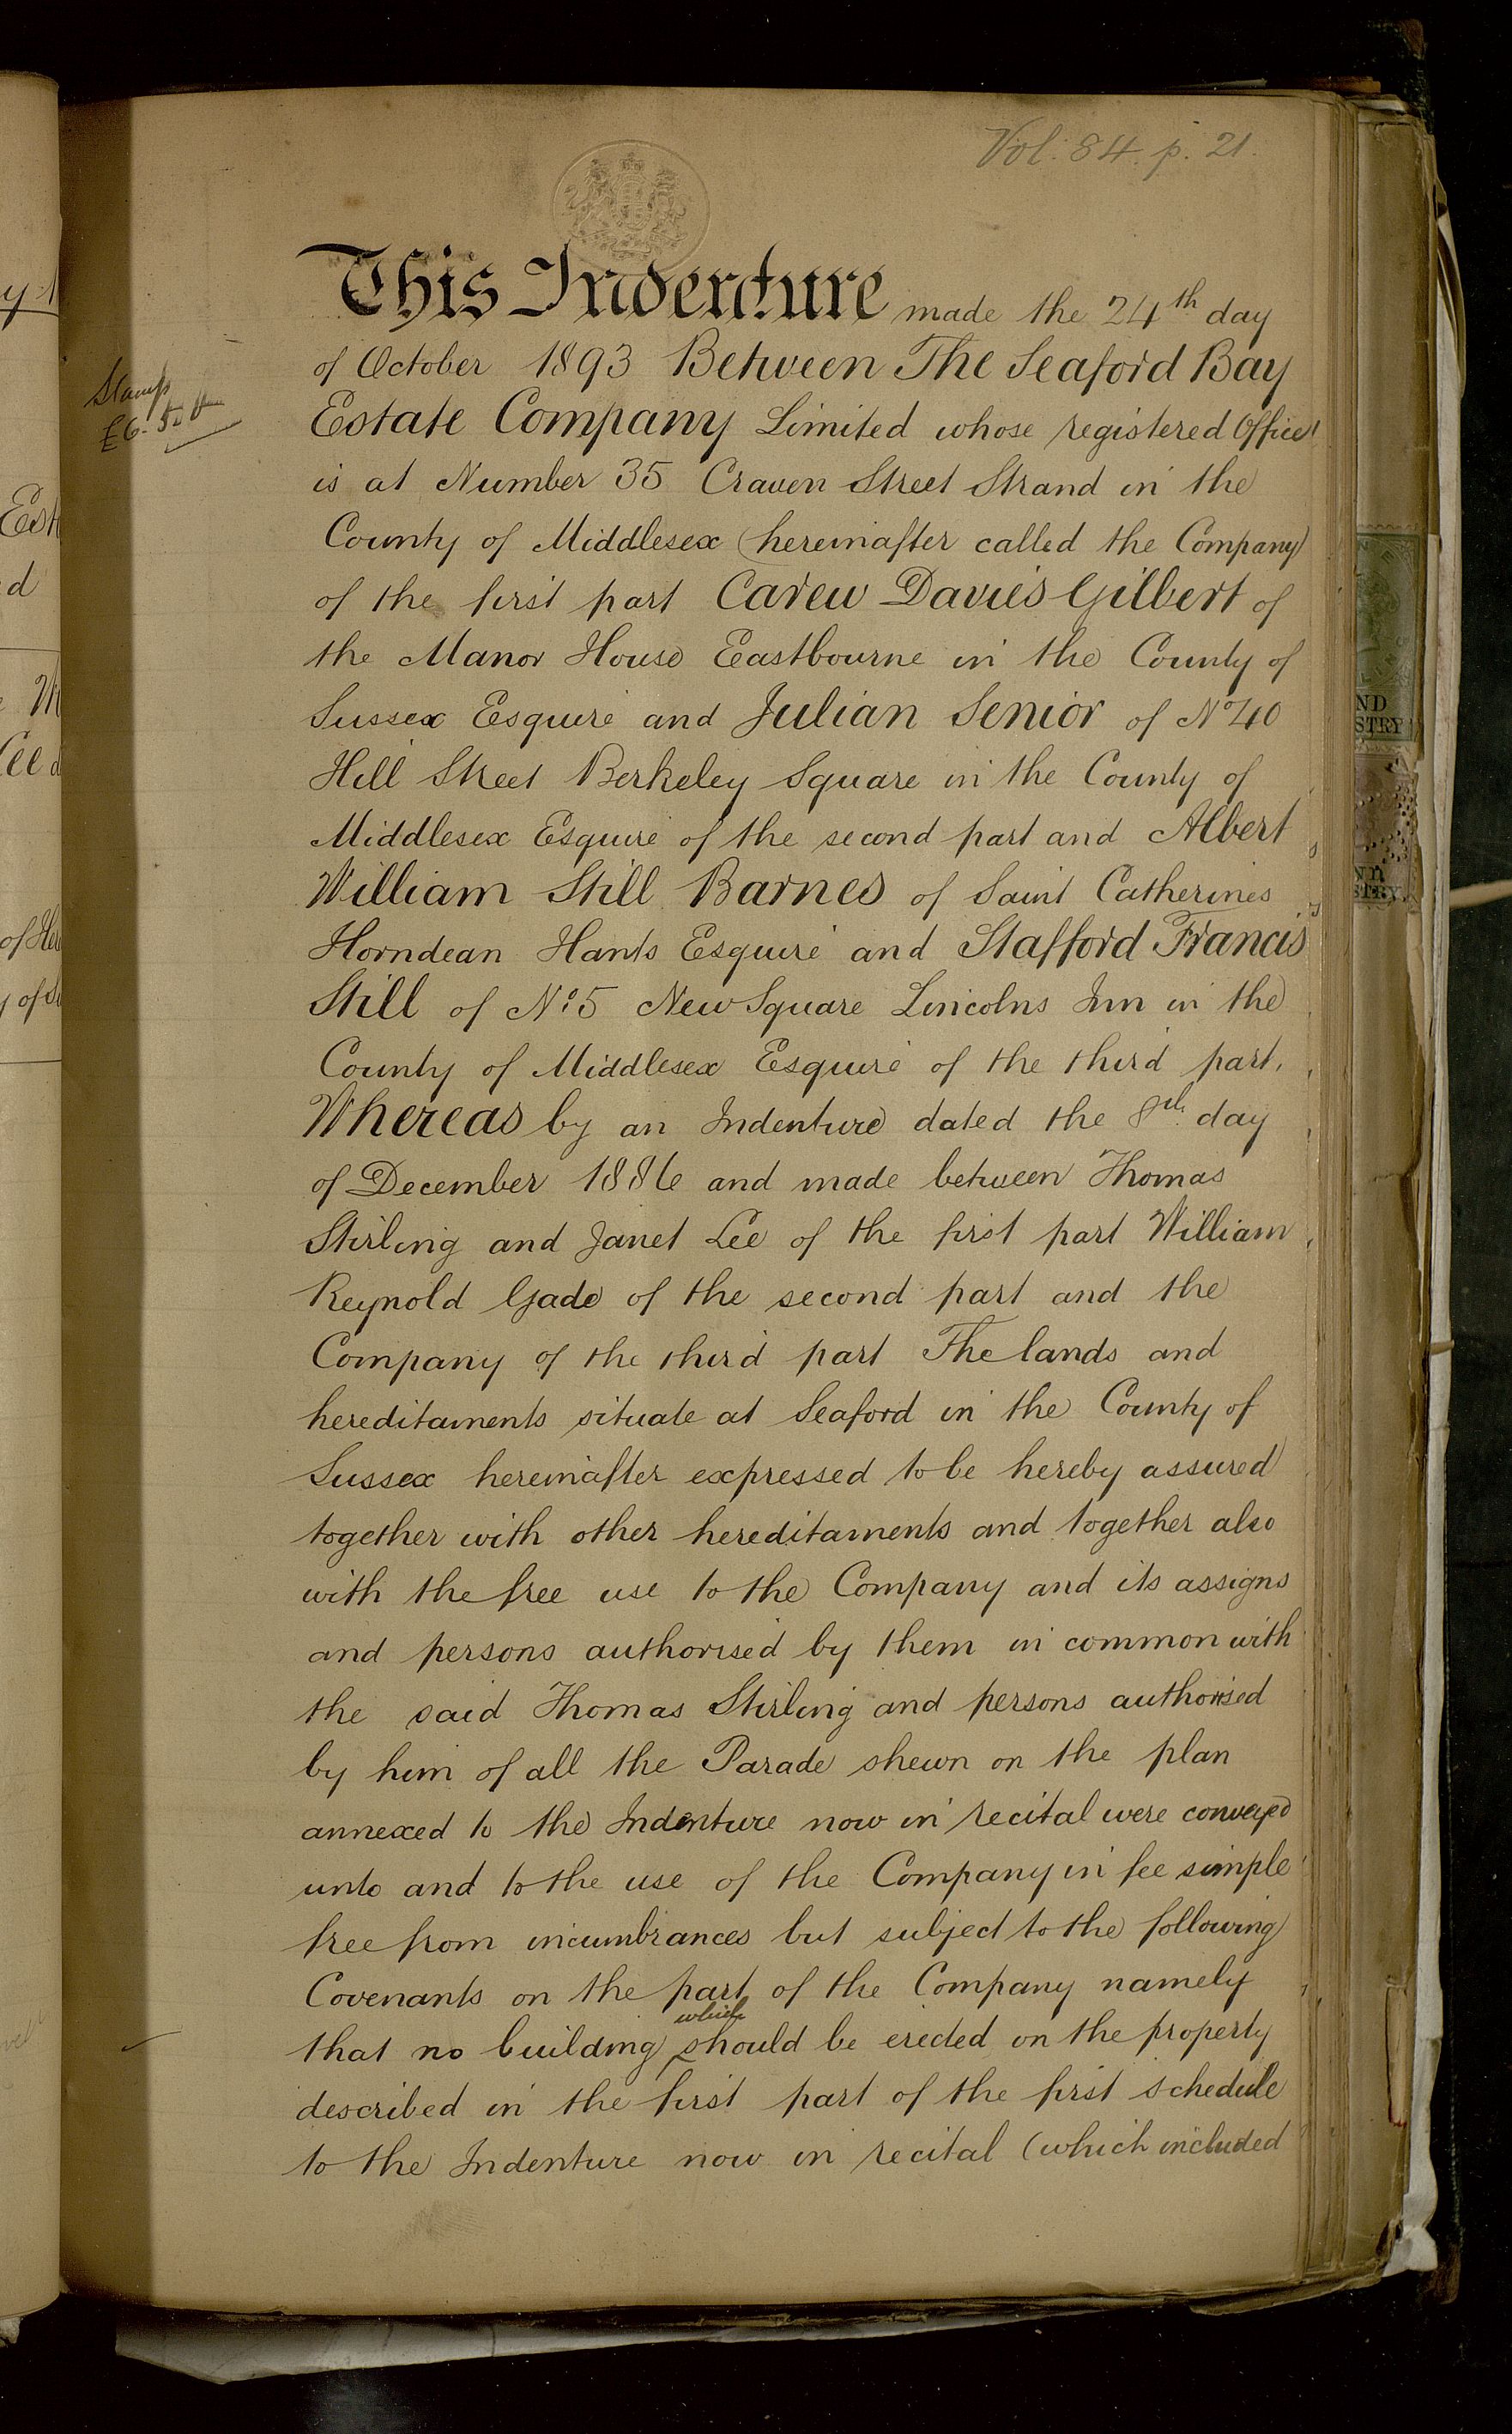 Vol: 84. p. 21.
This Indenture made the 24th day
of October 1893 Between The Seaford Bay
Stamp
£6.
Estate Company Limited whose registered Office
is at Number 35 Craven Street Strand in the
County of Middlesex (hereinafter called the Company)
of the first part Carew Davies Gilbert of
the Manor House Eastbourne in the County of
Sussex Esquire and Julian Senior of No 40
Hill Street Berkeley Square in the County of
Middlesex Esquire of the second part and Albert
William Still Barnes of Saint Catherines
Horndean Hants Esquire and Stafford Francis
Still of No 5 New Square Lincolns Inn in the
County of Middlesex Esquire of the third part.
Whereas by an Indenture dated the 8th day
of December 1886 and made between Thomas
Stirling and Janet Lee of the first part William
Reynold Gade of the second part and the
Company of the third part The lands and
hereditaments situate at Seaford in the County of
Sussex hereinafter expressed to be hereby assured
together with other hereditaments and together also
with the free use to the Company and its assigns
and persons authorised by them in common with
the said Thomas Stirling and persons authorised
by him of all the Parade shewn on the plan
annexed to the Indenture now in recital were conveyed
unto and to the use of the Company in fee simple
free from incumbrances but subject to the following
Covenants on the part of the Company namely
that no building which should be erected on the property
described in the first part of the first schedule
to the Indenture now in recital (which included